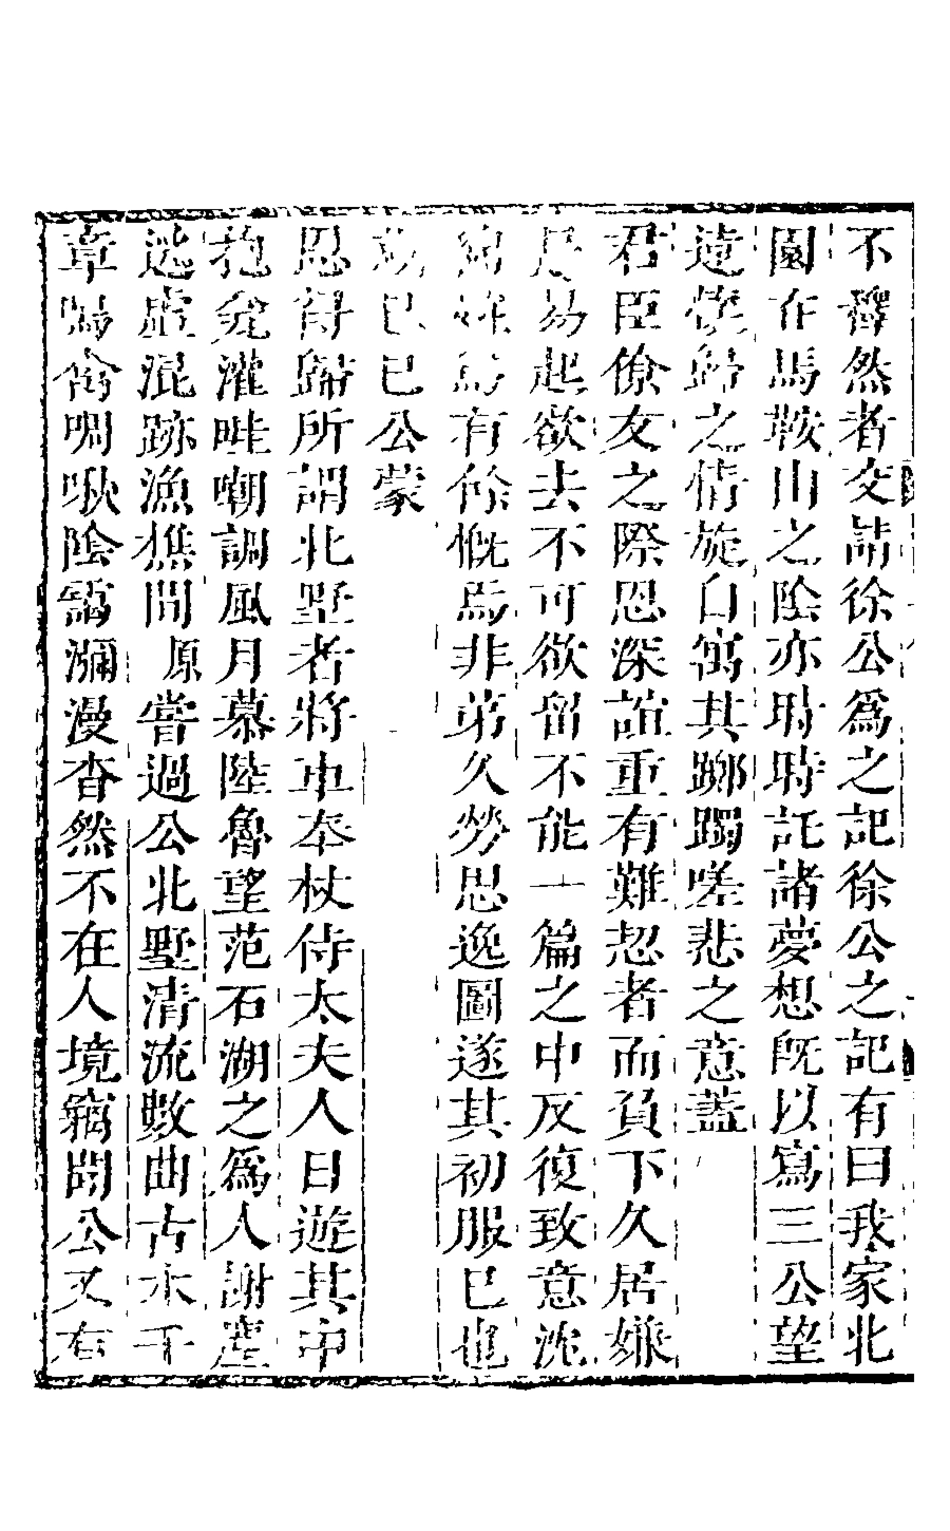 不釋然者交請徐公爲之記徐公之記有曰我家北
園在馬鞍山之陰亦時時託諸夢想旣以寫三公望
遠懷歸之情旋自寓其躑躅嗟悲之意蓋
君臣僚友之際恩深誼重有難恝者而負下久居嫌
是易起欲去不可欲留不能一篇之中反復致意沈
有餘慨焉非第久勞思逸圖遂其初服已也
己巳公蒙
恩得歸所謂北墅者將車奉杖侍太夫人日遊其中
抱瓮灌畦嘲調風月慕陸魯望范石湖之爲人謝塵
逃虛混跡漁樵間原嘗過公北墅清流數曲古木千
章鳴禽啁啾陰靄瀰漫杳然不在人境竊聞公又有